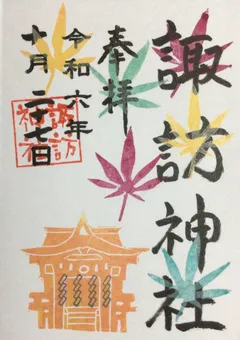 諏訪神社
奉拝
令和六年
十月二十七日
諏訪
神社